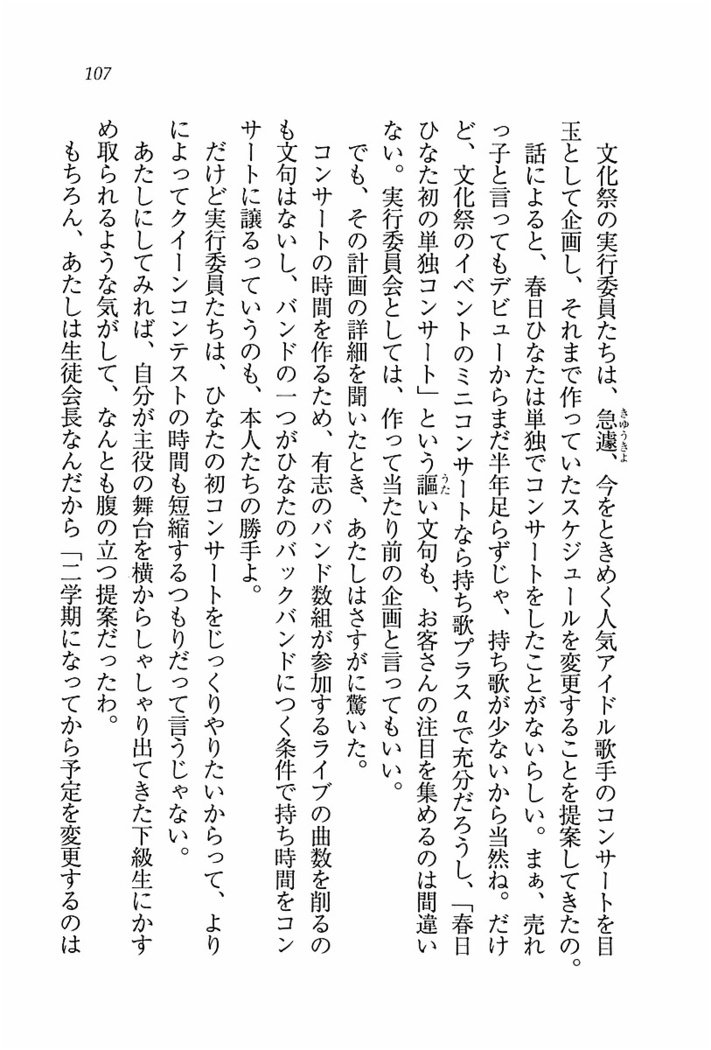 107
文化祭の実行委員たちは、急遽、今をときめく人気アイドル歌手のコンサートを目
玉として企画し、それまで作っていたスケジュールを変更することを提案してきたの。
話によると、春日ひなたは単独でコンサートをしたことがないらしい。まぁ、売れ
っ子と言ってもデビューからまだ半年足らずじゃ、持ち歌が少ないから当然ね。だけ
ど、文化祭のイベントのミニコンサートなら持ち歌プラスαで充分だろうし、「春日
ひなた初の単独コンサート」という謳い文句も、お客さんの注目を集めるのは間違い
ない。実行委員会としては、作って当たり前の企画と言ってもいい。
でも、その計画の詳細を聞いたとき、あたしはさすがに驚いた。
コンサートの時間を作るため、有志のバンド数組が参加するライブの曲数を削るの
も文句はないし、バンドの一つがひなたのバックバンドにつく条件で持ち時間をコン
サートに譲るっていうのも、本人たちの勝手よ。
だけど実行委員たちは、ひなたの初コンサートをじっくりやりたいからって、より
によってクイーンコンテストの時間も短縮するつもりだって言うじゃない。
あたしにしてみれば、自分が主役の舞台を横からしゃしゃり出てきた下級生にかす
め取られるような気がして、なんとも腹の立つ提案だったわ。
もちろん、あたしは生徒会長なんだから「二学期になってから予定を変更するのは
きゆうきよ
うた